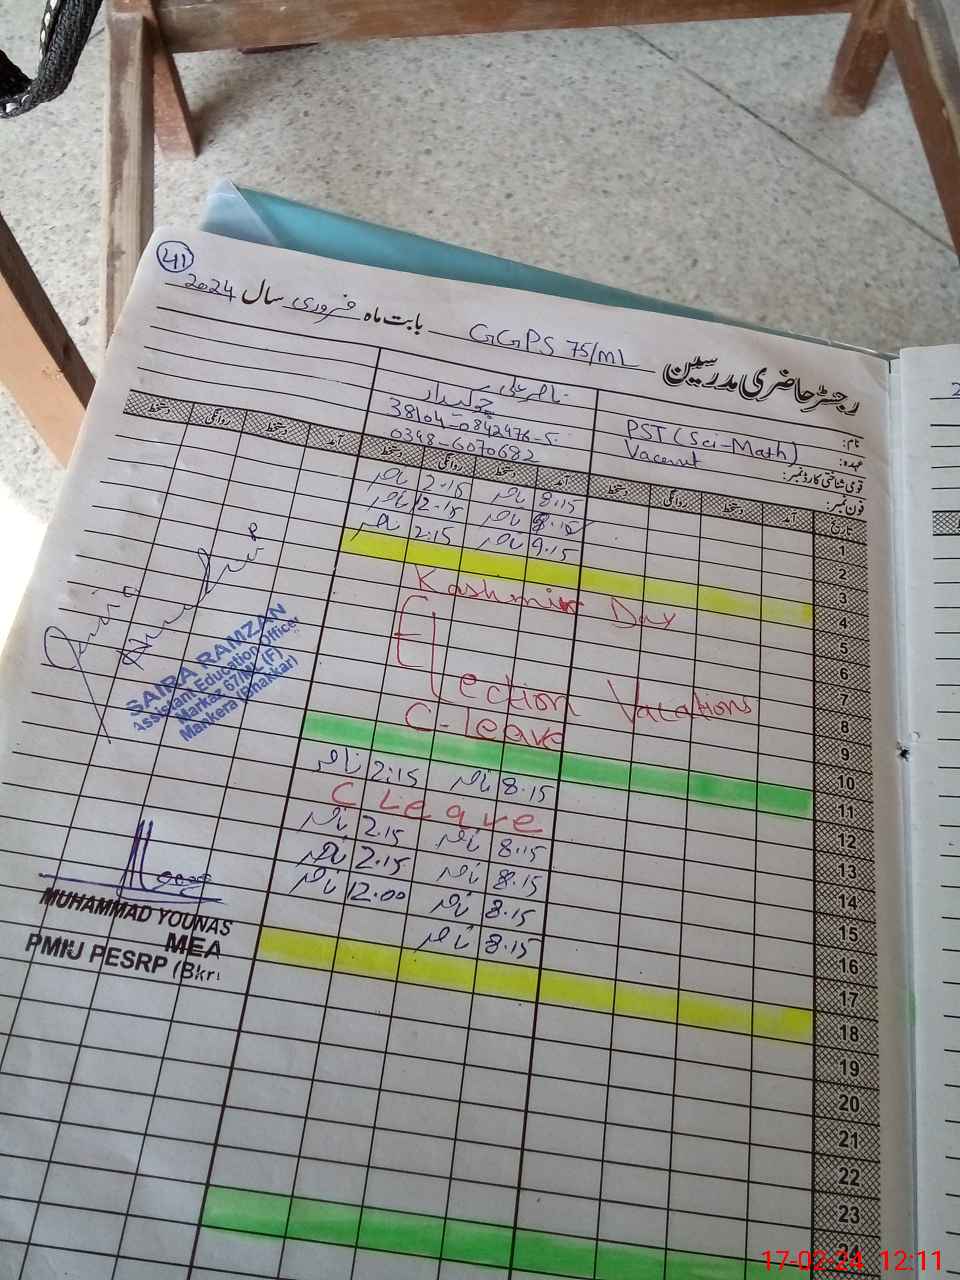 41
رجسٹر حاضری مدرسین GGPS 75/ML بابت ماہ فروری سال 2024
نام: PST (Sci-Math) ناصر علی
عہدہ: Vacant چوکیدار
قومی شناختی کارڈ نمبر:
فون نمبر: 0348-6070682
تاریخ آمد دستخط روانگی دستخط آمد دستخط روانگی دستخط آمد دستخط روانگی دستخط
1 8.15 ناصر 2.15 ناصر
2 8.15 ناصر 12.15 ناصر
3 9.15 ناصر 2.15 ناصر
4
5 Kashmir Day
6
7
8 Election Vacations
9 C-leave
10
11
12 8.15 ناصر 2.15 ناصر
13 C Leave
14 8.15 ناصر 2.15 ناصر
15 8.15 ناصر 2.15 ناصر
16 8.15 ناصر 12.00 ناصر
17 8.15 ناصر
18
19
20
21
22
23
24
SAIRA RAMZAN
Assistant Education Officer
Markaz 67/ML (F)
Mankera (Bhakkar)
MUHAMMAD YOUNAS
MEA
PMIU PESRP (Bkr)
2
17-02-24 12:11